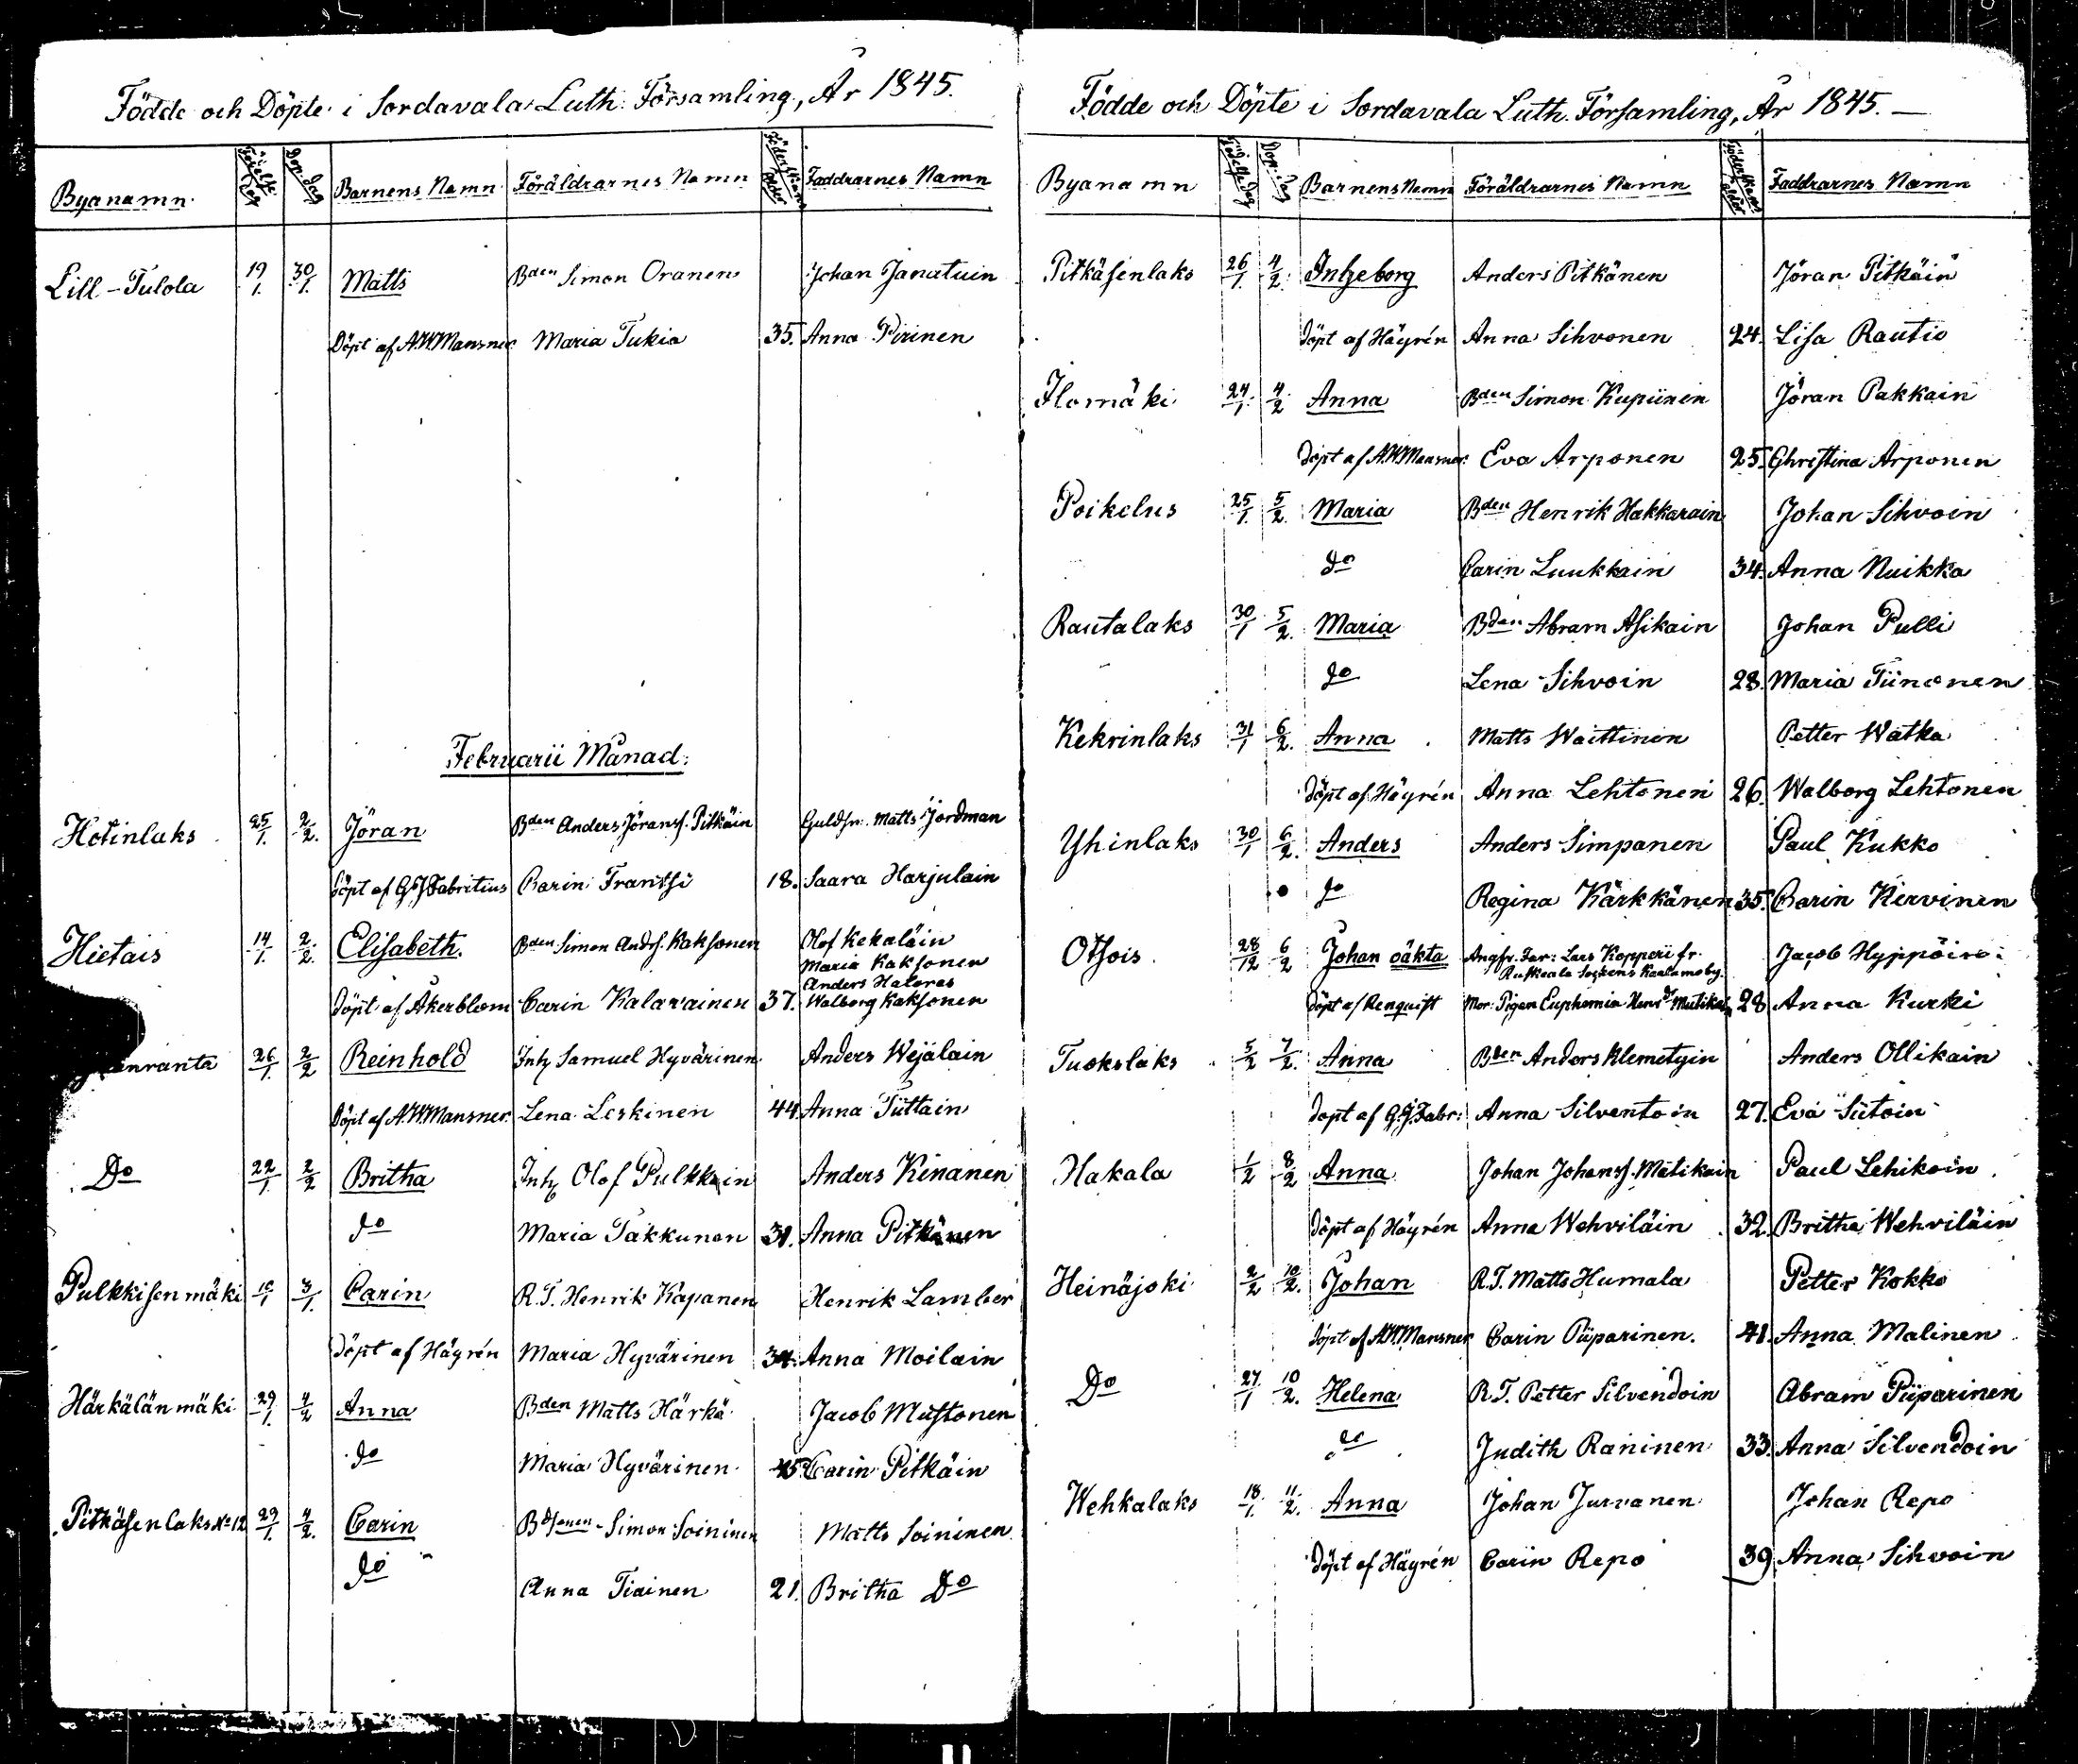 Födde och Döpte i Sordavala Luth. Församling, År 1845.
Byanamn Födelse Dag Dop. Dag Barnens Namn Föräldrarnes Namn Föderskans ålder Faddrarnes Namn
Lill-Tulola 19/1. 30/1. Matts Bden Simon Oranen Johan Janatuin
Döpt af A.W.Mansner Maria Tukia 35. Anna Pirinen
Februarii Månad.
Hotinlaks 25/1. 2/2. Jöran Bden Anders Jöranss. Pitkäin Guldsm. Matts Jordman
Döpt af G.J.Fabritius Carin Frantsi 18. Saara Harjulain
Hietais 14/1. 2/2. Elisabeth. Bden Simon Andrs. Kaksonen Olof Kekäläin
Maria Kaksonen
Anders Halores
Döpt af Åkerblom Carin Kalavainen 37. Walborg Kaksonen
anranta 26/1. 2/2 Reinhold Inh Samuel Hyvärinen Anders Wejalain
Döpt af A.W.Mansner. Lena Leskinen 44. Anna Tuttain
Do 22/1. 2/2 Britha Inh Olof Pulkkin Anders Kinanen
do Maria Takkunen 31. Anna Pitkänen
Pulkkisenmäki 3/1. Carin R.T. Henrik Käpanen Henrik Lamber
Döpt af Häyrén Maria Hyvärinen 34. Anna Moilain
Härkälänmäki 29/1. 4/2 Anna Bden Matts Härkä Jacob Mustonen
do Maria Hyvärinen 45. Carin Pitkäin
Pitkäsenlaks No 12 29/1. 4/2. Carin Bdsonen Simon Soininen Matts Soininen
do Anna Tiainen 21. Britha Do
Födde och Döpte i Sordavala Luth. Församling, År 1845.
Byanamn Födelse Dag Dop. Dag Barnens Namn Föräldrarnes Namn Föderskans ålder Faddrarnes Namn
Pitkäsenlaks 26/1. 4/2. Ingeborg Anders Pitkänen Jöran Pitkäin
Döpt af Häyrén Anna Sihvonen 24. Lisa Rautio
Ilomäki 24/1. 4/2 Anna Bden Simon Kupiinen Jöran Pakkain
Döpt af A.W.Mansner. Eva Arponen 25. Christina Arponen
Poikelus 25/1. 5/2. Maria Bden Henrik Hakkarain Johan Sihvoin
do Carin Luukkain 34. Anna Nuikka
Rautalaks 30/1 5/2. Maria Bden Abram Asikain Johan Pulli
do Lena Sihvoin 28. Maria Tiinonen
Kekrinlaks 31/1 6/2. Anna Matts Waittinen Petter Watka
Döpt af Häyrén Anna Lehtonen 26. Walborg Lehtonen
Yhinlaks 30/1 6/2. Anders Anders Simpanen Paul Kukko
do Regina Kärkkänen 35. Carin Kervinen
Otsois 28/12 6/2 Johan oäkta Angfr. Far: Lars Kopperi fr. Jacob Hyppöin
Ruskeala Sockens Kaalamo by.
Döpt af Renquist Mor: Pigan Euphemia Henr.dr Mutikain 28 Anna Kurki
Tuokslaks 5/2 7/2. Anna Bden Anders Klemetyin Anders Ollikain
Döpt af G.J.Fabr: Anna Silventoin 27. Eva Siitoin
Hakala 1/2 8/2 Anna Johan Johanss. Mätikain Paul Lehikoin
Döpt af Häyrén Anna Wehviläin 32. Britha Wehviläin
Heinäjoki 2/2 10/2. Johan R.T. Matts Humala Petter Kokko
Döpt af A.W.Mansner Carin Piiparinen. 41. Anna Malinen
Do 27/1 10/2. Helena R.T. Petter Silvendoin Abram Piiparinen
do Judith Raninen 33. Anna Silvendoin
Wehkalaks 18/1. 11/2. Anna Johan Jurvanen Johan Repo
Döpt af Häyrén Carin Repo 39 Anna Sihvoin